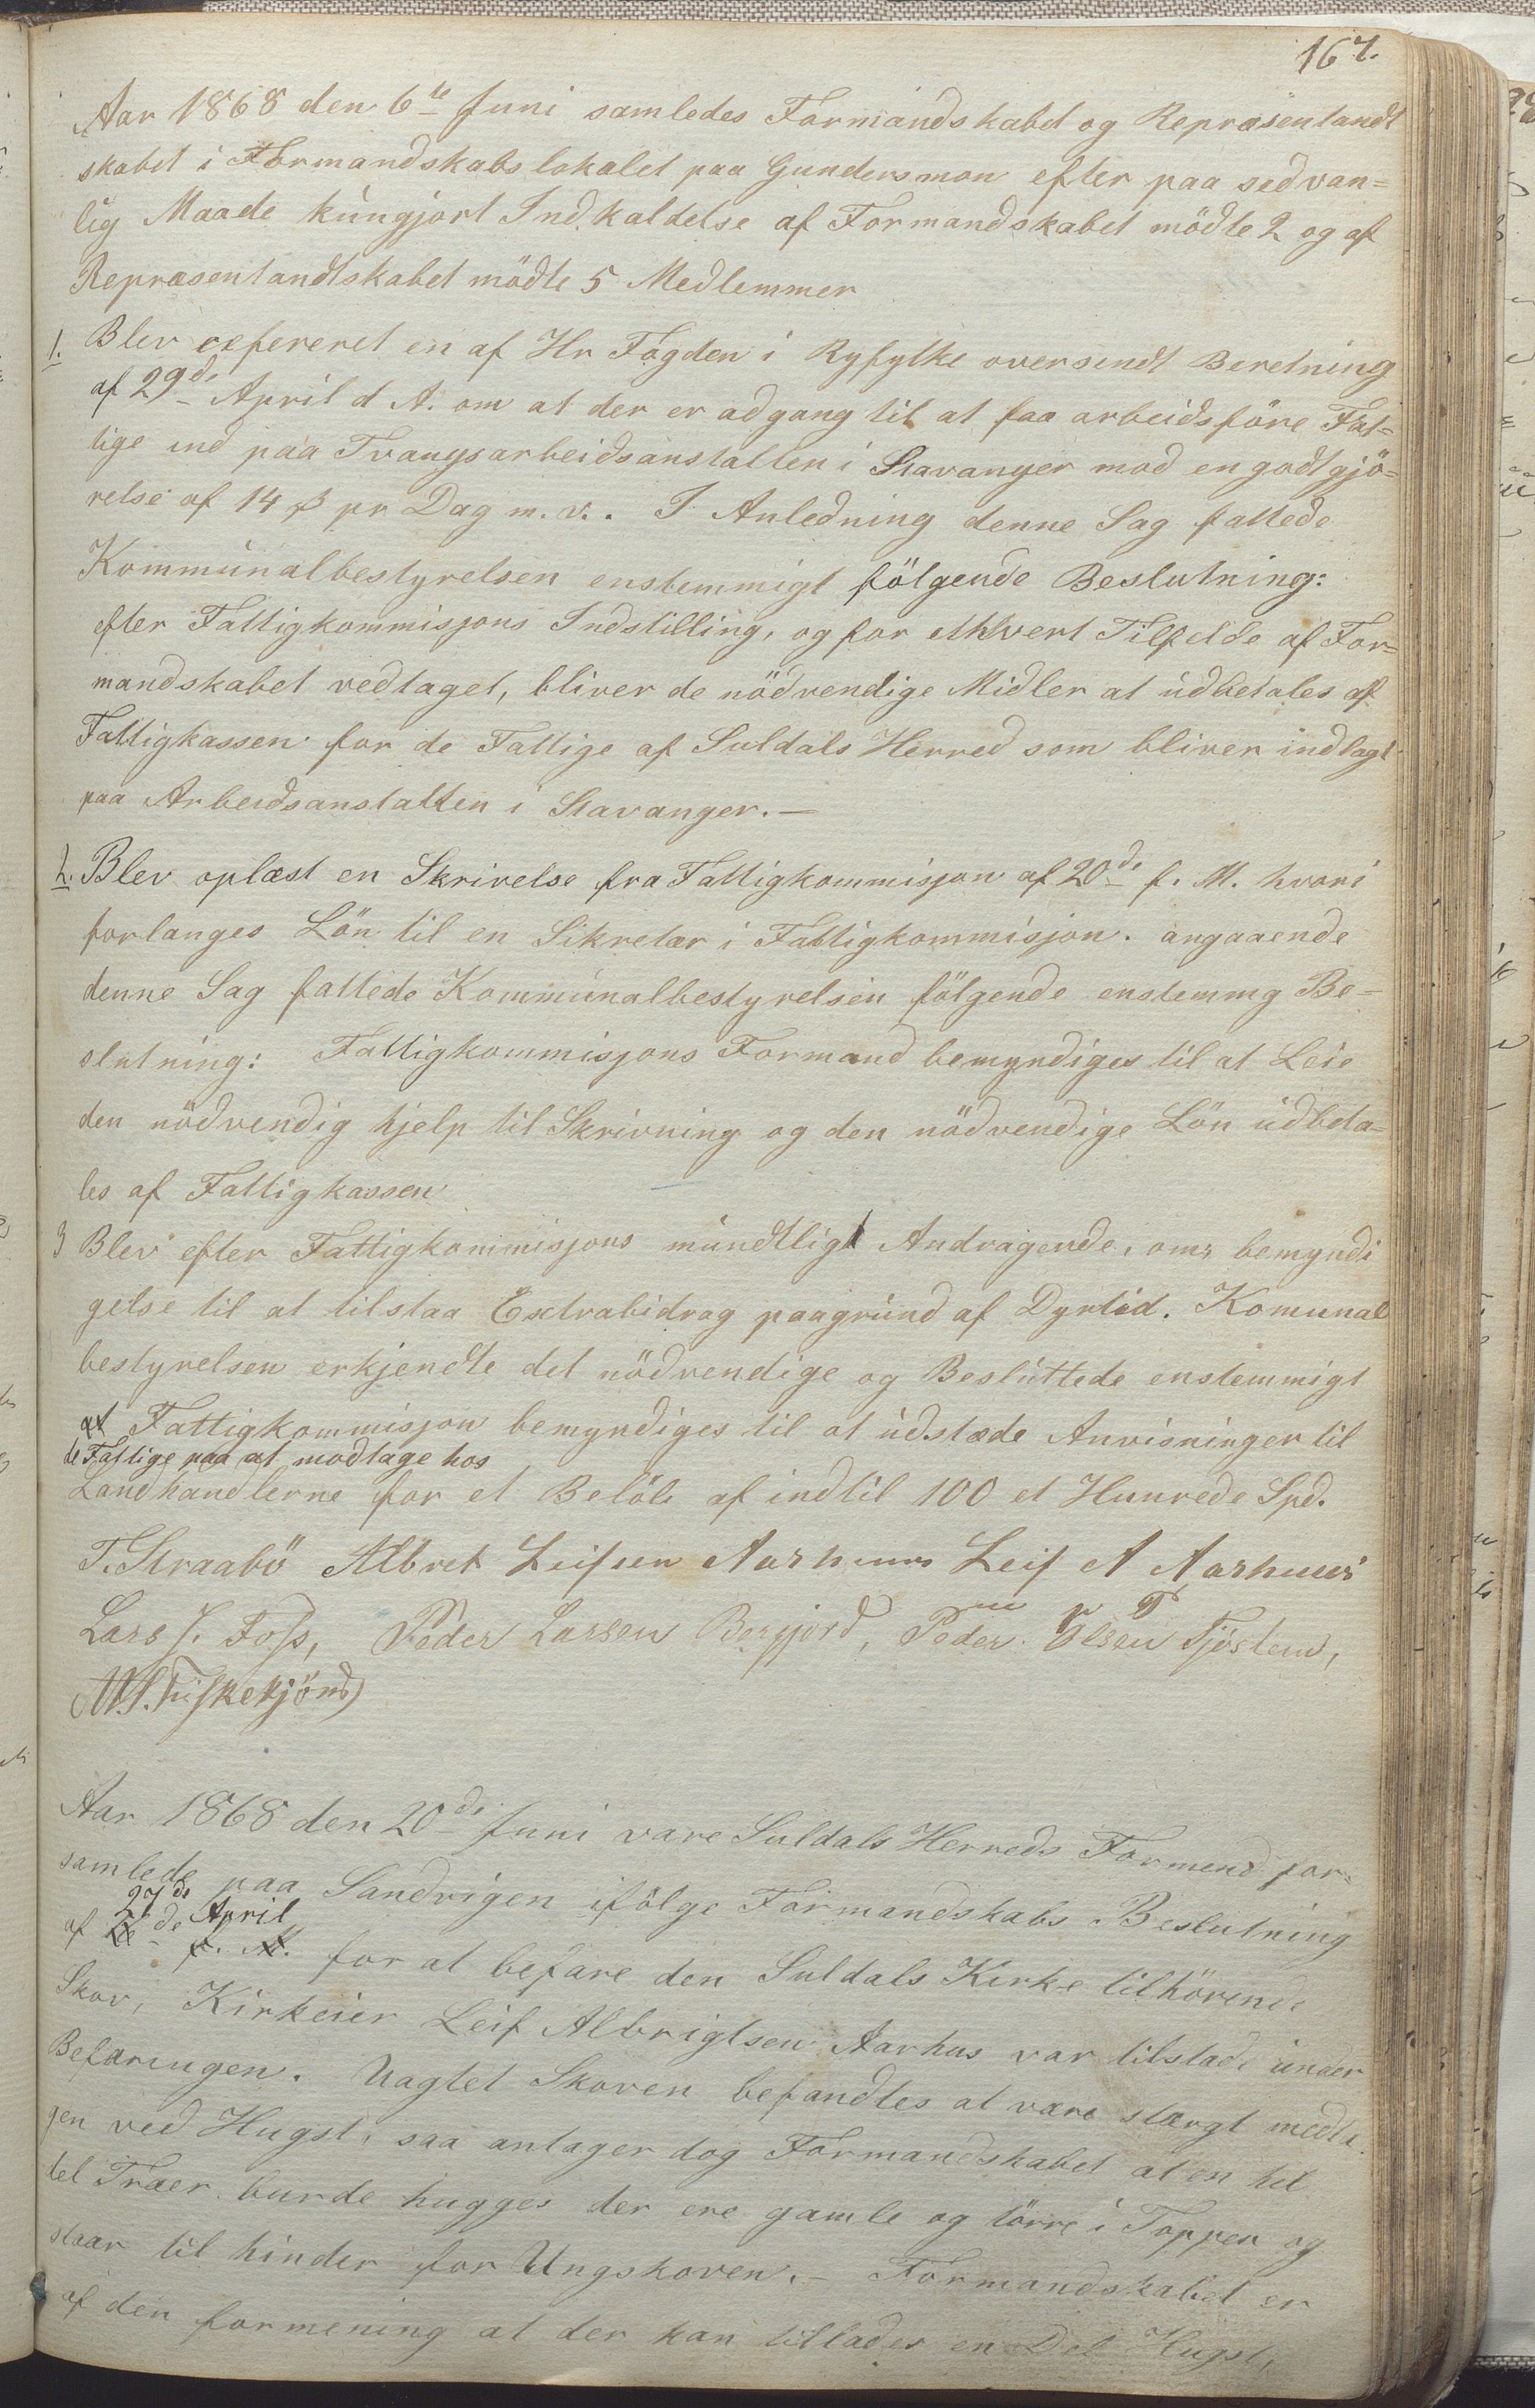 167.
Aar 1868 den 6te Juni samledes Formandskabet og Repræsentandt
skabet i Formandskabs lokalet paa Gundersmon efter paa sedvan=
lig Maade kungjort Indkaldelse af Formandskabet mödte 2 og af
Repræsentandtskabet mödte 5 Medlemmer
1. Blev refereret en af Hr Fogden i Ryfylke oversendt Beretning
af 29de April d A. om at der er adgang til at faa arbeidsföre Fat=
tige ind paa Tvangsarbeidsanstalten i Stavanger mod en godtgjö=
relse af 14 ß pr Dag m. v. I Anledning denne Sag fattede
Kommunalbestyrelsen enstemmigt fölgende Beslutning:
efter Fattigkommisjons Indstilling, og for ethvert Tilfelde af For=
mandskabet vedtaget, bliver de nödvendige Midler at udbetales af
Fattigkassen for de Fattige af Suldals Herred som bliver indlagt
paa Arbeidsanstalten i Stavanger. —
2. Blev oplæst en Skrivelse fra Fattigkommisjon af 20de f. M. hvori
forlanges Lön til en Sikretær i Fattigkommisjon. angaaende
denne Sag fattede Kommunalbestyrelsen fölgende enstemmig Be=
slutning: Fattigkommisjons Formand bemyndiges til at Leie
den nödvendig hjelp til Skrivning og den nödvendige Lön udbeta=
les af Fattigkassen
3 Blev efter Fattigkommisjons mundtligt Andragende, om bemyndi
gelse til at tilstaa Extrabidrag paagrund af Dyrtid. Komunal
bestyrelsen erkjendte det nödvendige og Besluttede enstemmigt
at Fattigkommisjon bemyndiges til at udstæde Anvisninger til
de Fattige paa at modtage hos
Landhandlerne for et Belöb af indtil 100 et Hunrede Spd.
T. Straabö Albret Leifsen Aarhuus Leif A Aarhuus
Lars J. Foss, Peder Larsen Bergjord, Peder Olsen Tjöstem,
Aar 1868 den 20de Juni vare Suldals Herreds Formend for=
samlede paa Sandvigen ifölge Formandskabs Beslutning
27de April
af de f. M. for at befare den Suldals Kirke tilhörende
Skov, Kirkeier Leif Albrigtsen Aarhus var tilstede under
Befaringen. Uagtet Skoven befandtes at være stærgt medta
gen ved Hugst, saa antager dog Formandskabet at en hel
del Træer burde hugges der ere gamle og törre i Toppen og
staar til hinder for Ungskoven. — Formandskabet er
af den formening at der kan tillades en Del Hugst,